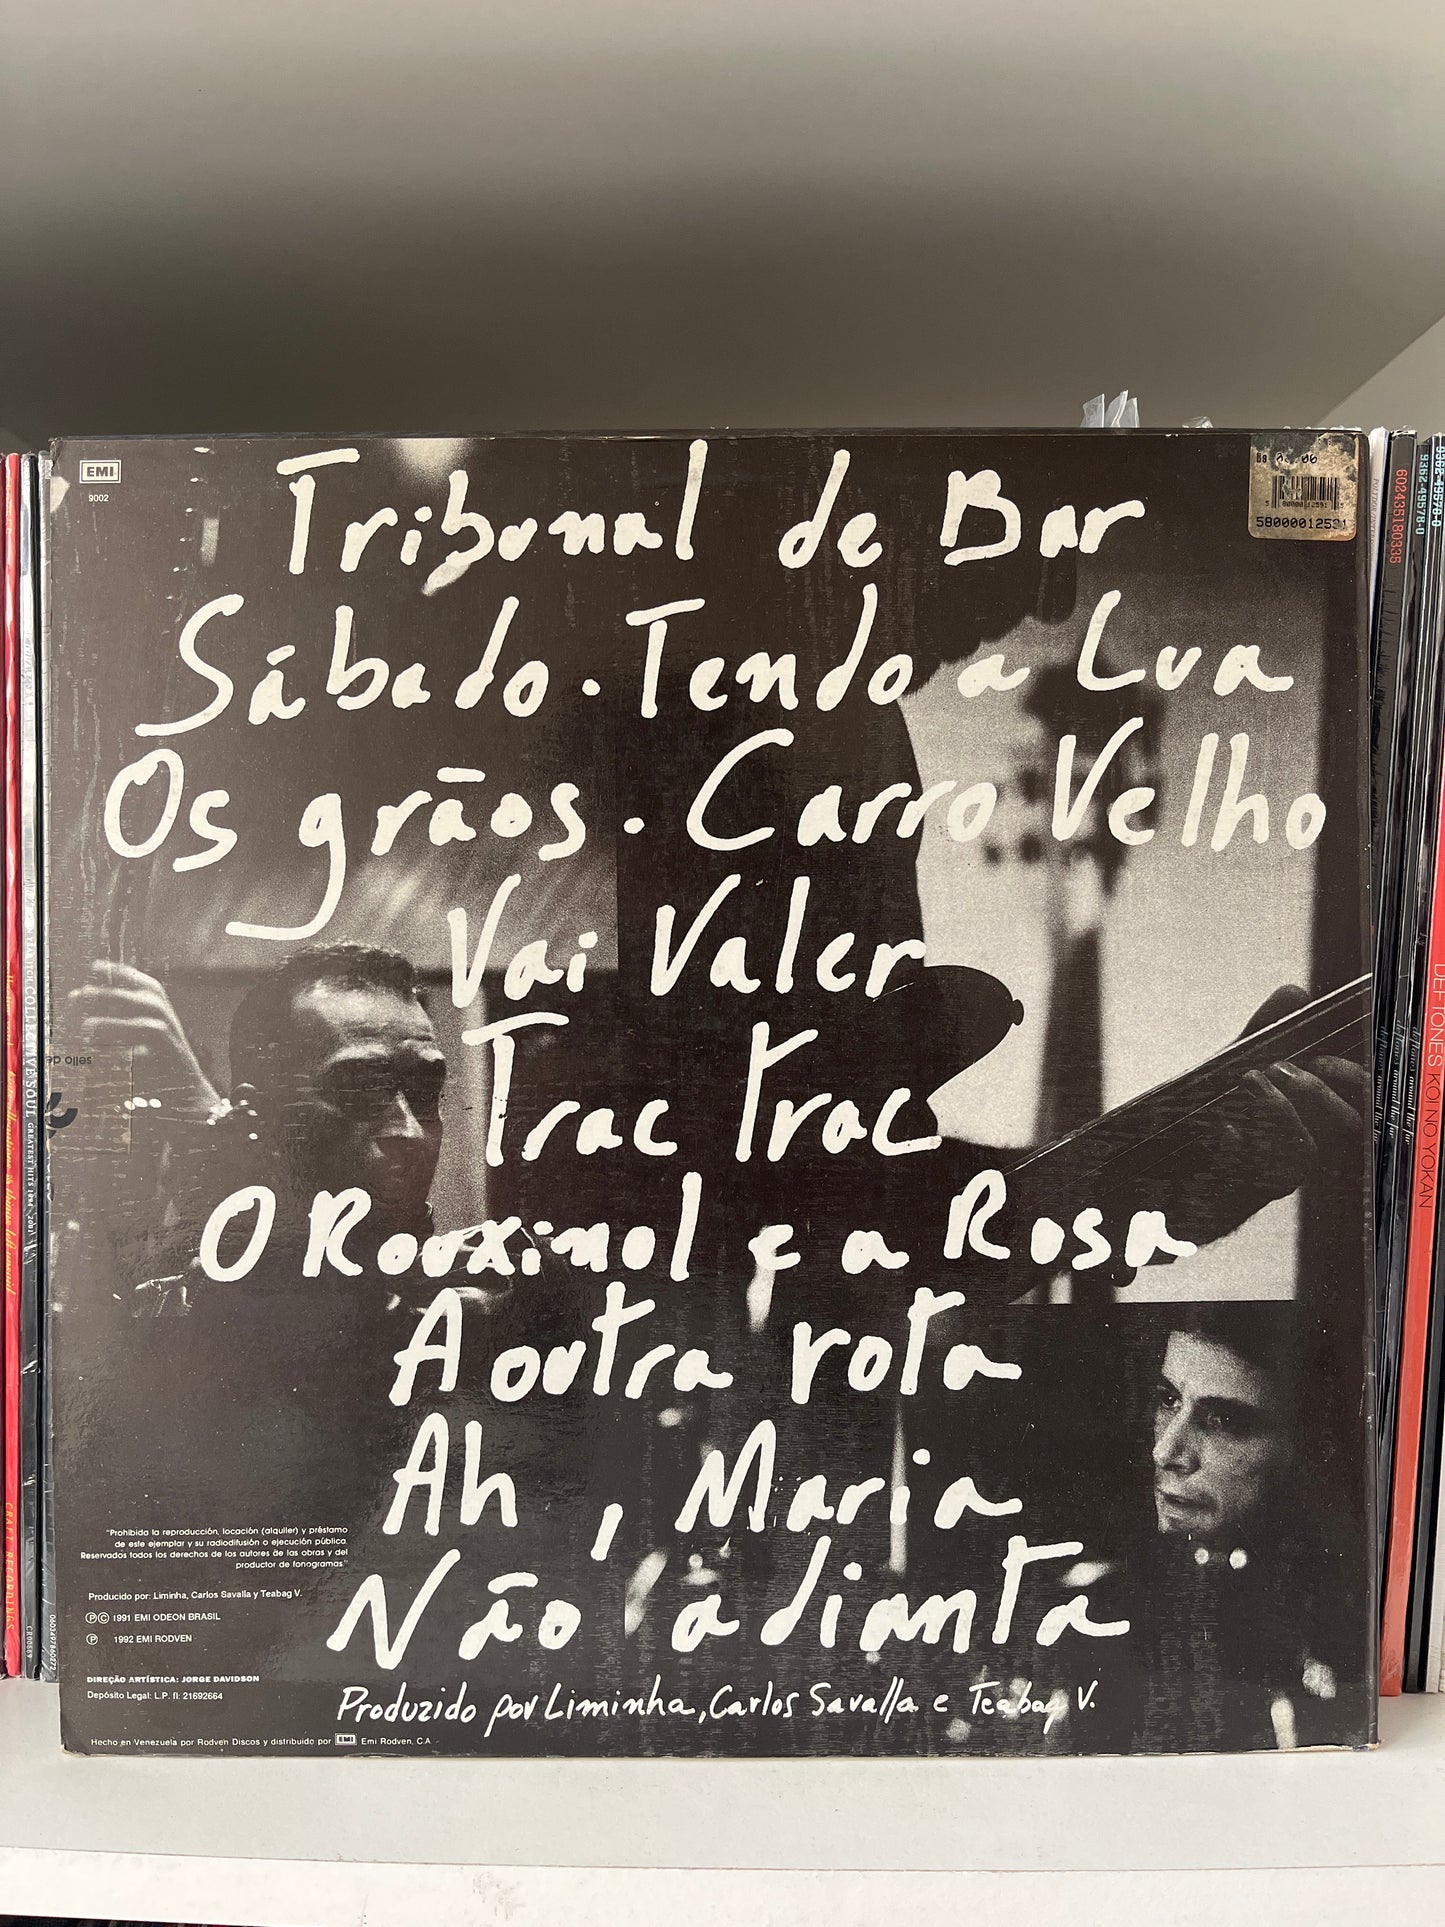 EMI
9002
58000012531
Tribunal de Bar
Sábado. Tendo a Lua
Os grãos. Carro Velho
Vai Valer
Trac trac
O Rouxinol e a Rosa
A outra rota
Ah, Maria
Não adianta
Produzido por Liminha, Carlos Savalla e Teabag V.
"Prohibida la reproducción, locación (alquiler) y préstamo
de este ejemplar y su radiodifusión o ejecución pública.
Reservados todos los derechos de los autores de las obras y del
productor de fonogramas."
Producido por: Liminha, Carlos Savalla y Teabag V.
Ⓟ© 1991 EMI ODEON BRASIL
Ⓟ 1992 EMI RODVEN
DIREÇÃO ARTÍSTICA: JORGE DAVIDSON
Depósito Legal: L.P. fl: 21692664
Hecho en Venezuela por Rodven Discos y distribuido por EMI Emi Rodven, C.A.
sello de
COLLECTIVE SOUL GREATEST HITS
CRAFT RECORDINGS
CR00659
602435180335
9362-49578-0
9362-49578-0
deftones around the fur
deftones around the fur
DEFTONES KOI NO YOKAN